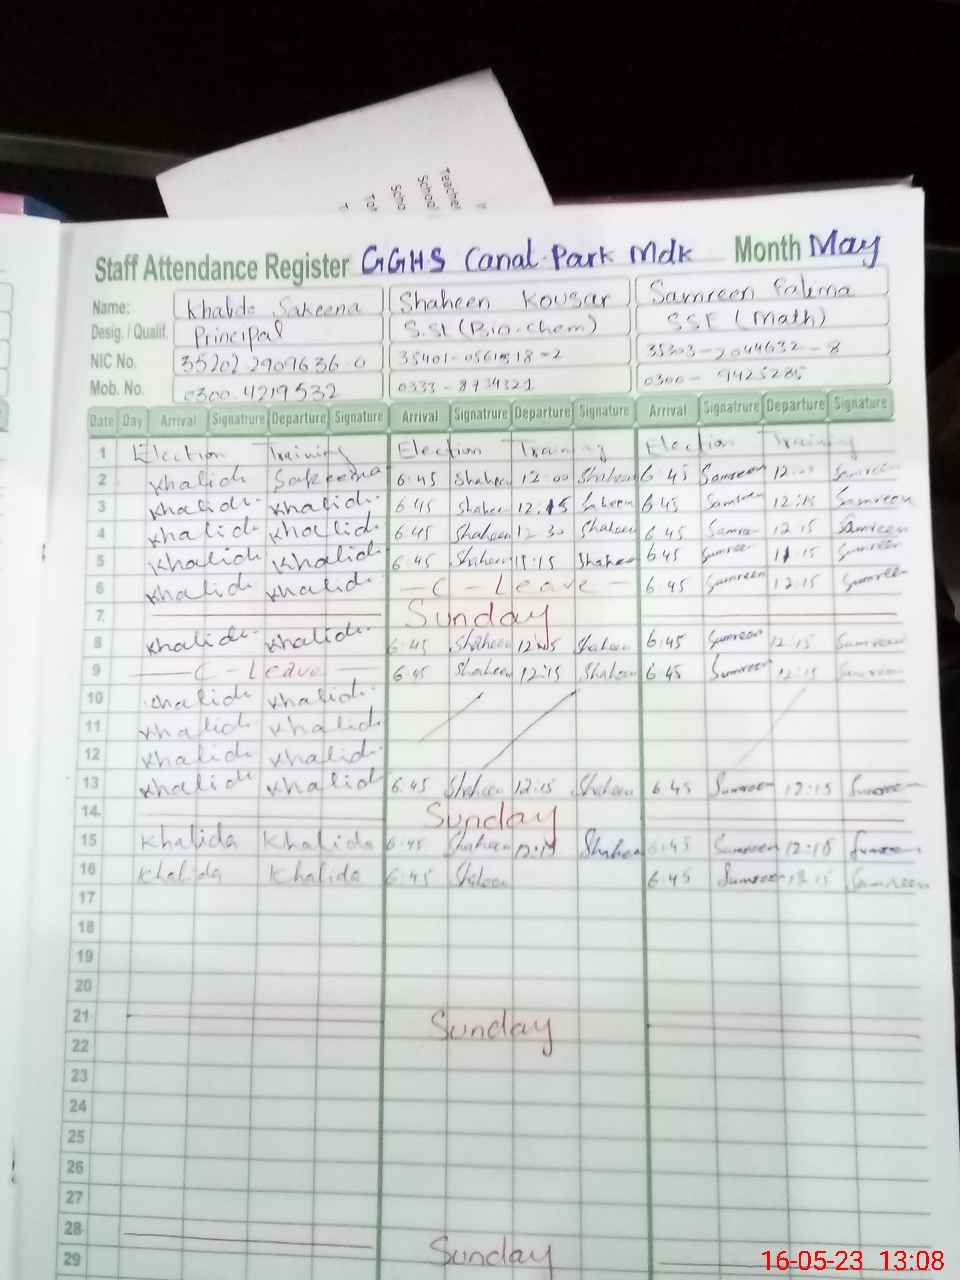 Teacher
School
Scho
Tot
Staff Attendance Register GGHS Canal Park Mdk Month May
Name: Khalida Sakeena Shaheen Kousar Samreen Fatima
Desig. / Qualif. Principal S.St (Bio-chem) SSE (Math)
NIC No.
Mob. No. 0300-4219532 0333-8734321
Date Day Arrival Signature Departure Signature Arrival Signatrure Departure Signature Arrival Signatrure Departure Signature
1 Election Training Election Training Election Training
2 Khalida Sakeena 6:45 Shaheen 12:00 Shaheen 6 45 Samreen 12:00 Samreen
3 Khalida Khalida 6 45 Shaheen 12:15 Shaheen 6 45 Samreen 12:15 Samreen
4 Khalida Khalida 6.45 Shaheen 12 30 Shaheen 6 45 Samreen 12 15 Samreen
5 Khalida Khalida 6.45 Shaheen 11:15 Shaheen 6 45 Samreen 11 15 Samreen
6 Khalida Khalida — C - Leave — 6 45 Samreen 12 15 Samreen
7. Sunday
8 Khalida Khalida 6:45 Shaheen 12:15 Shaheen 6:45 Samreen 12:15 Samreen
9 — C - Leave — 6:45 Shaheen 12:15 Shaheen 6:45 Samreen 12:15 Samreen
10 Khalida Khalida
11 Khalida Khalida
12 Khalida Khalida
13 Khalida Khalida 6.45 Shaheen 12:15 Shaheen 6 45 Samreen 12:15 Samreen
14. Sunday
15 Khalida Khalida 6:45 Shaheen 12:15 Shaheen 6:45 Samreen 12:15 Samreen
16 Khalida Khalida 6:45 Shaheen 6:45 Samreen 12:15 Samreen
17
18
19
20
21 Sunday
22
23
24
25
26
27
28 Sunday
29
16-05-23 13:08